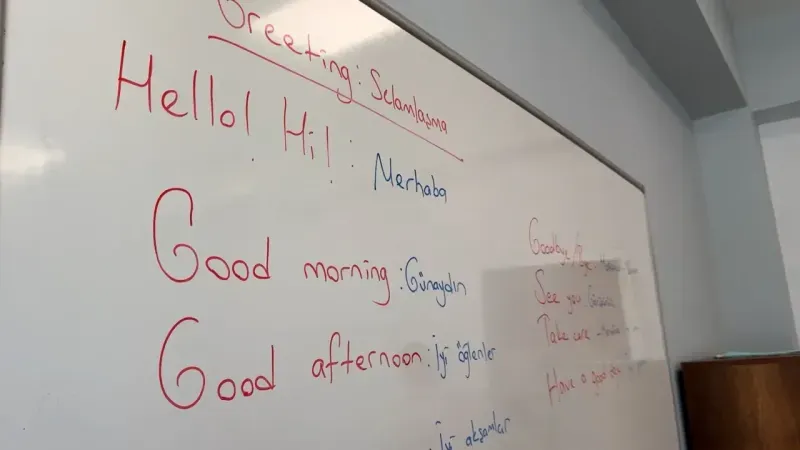 Greeting: Selamlaşma
Hello! Hi! : Merhaba
Good morning : Günaydın
Good afternoon : İyi öğlenler
İyi akşamlar
Goodbye /
See you
Take care
Have a good